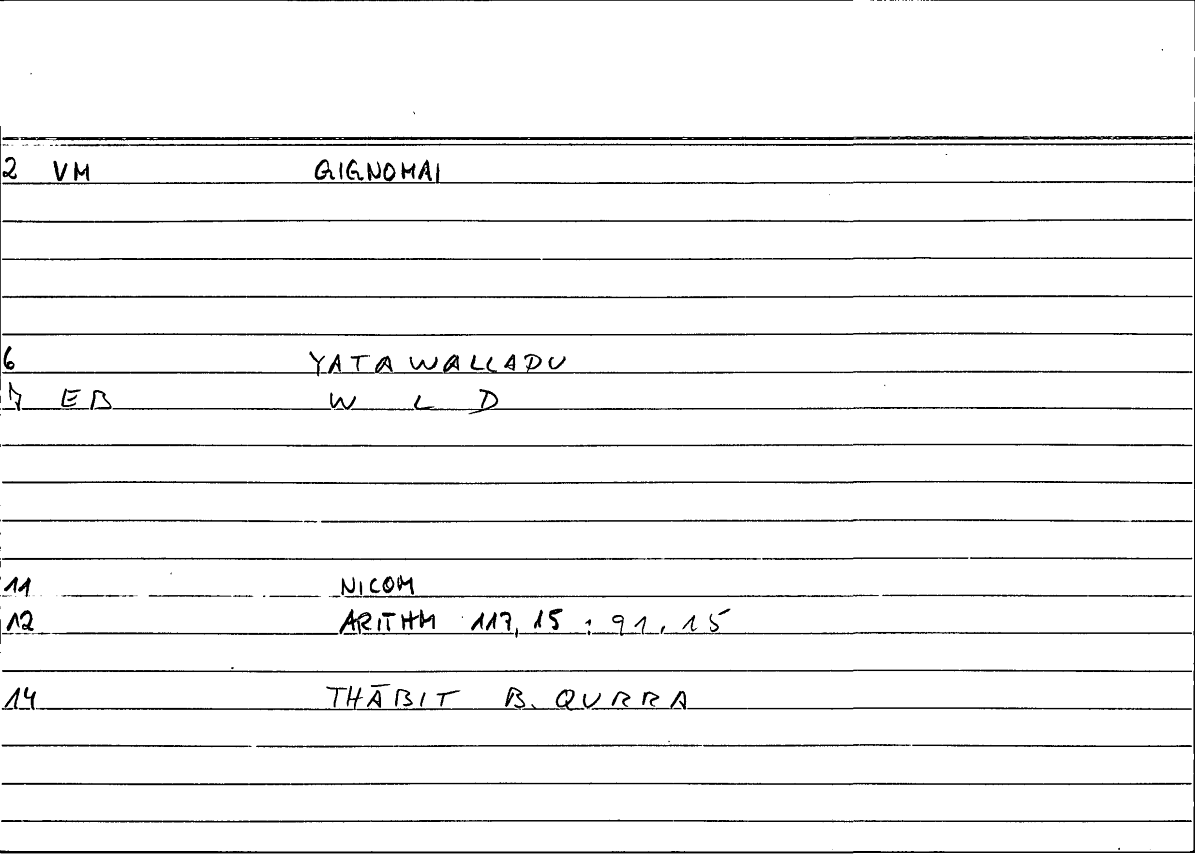 2 VM GIGNOMAI
6 YATAWALLADU
7 EB W L D
11 NICOM
12 ARITHM 117, 15 : 91, 15
14 THĀBIT B. QURRA